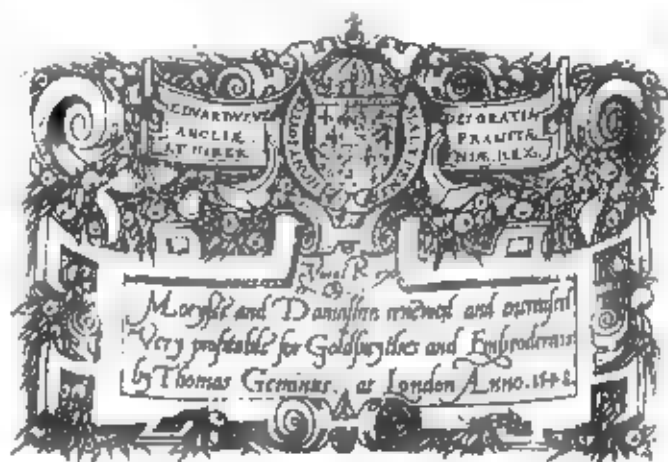 ANGLIÆ
DEI GRATIA
FRANCIÆ
NIÆ. REX.
Morysse and Damashin renewed and encreased
Very profitable for Goldsmythes and Embroderars
by Thomas Geminus. at London Anno. 1548.